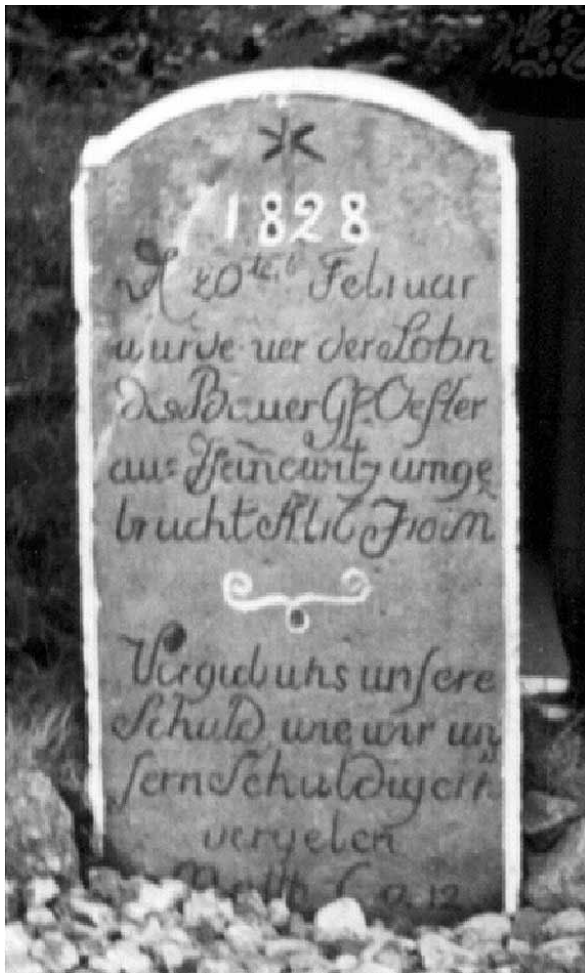 1828
D 20ten Februar
wurde hier der Sohn
des Bauer Gf. Oesler
aus umge
bracht Alt
Vergieb uns unsere
Schuld, wie wir un
sern Schuldigern
vergeben
Matth 6 v. 12